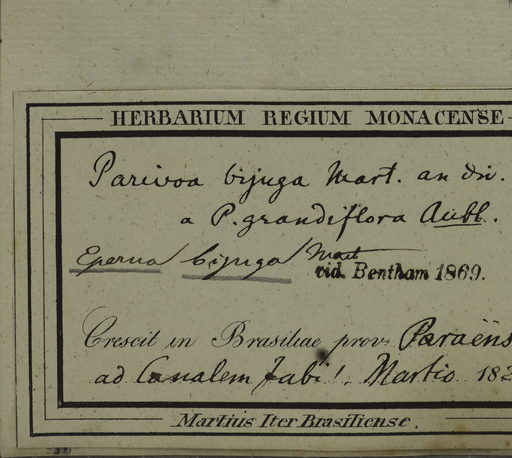 HERBARIUM REGIUM MONACENSE
Parivoa bijuga Mart. an div.
a P. grandiflora Aubl.
Eperua bijuga Mart
vid. Bentham 1869.
Crescit in Brasiliae prov. Paraëns
ad Canalem Jabi! Martio 182
Martius Iter Brasiliense.